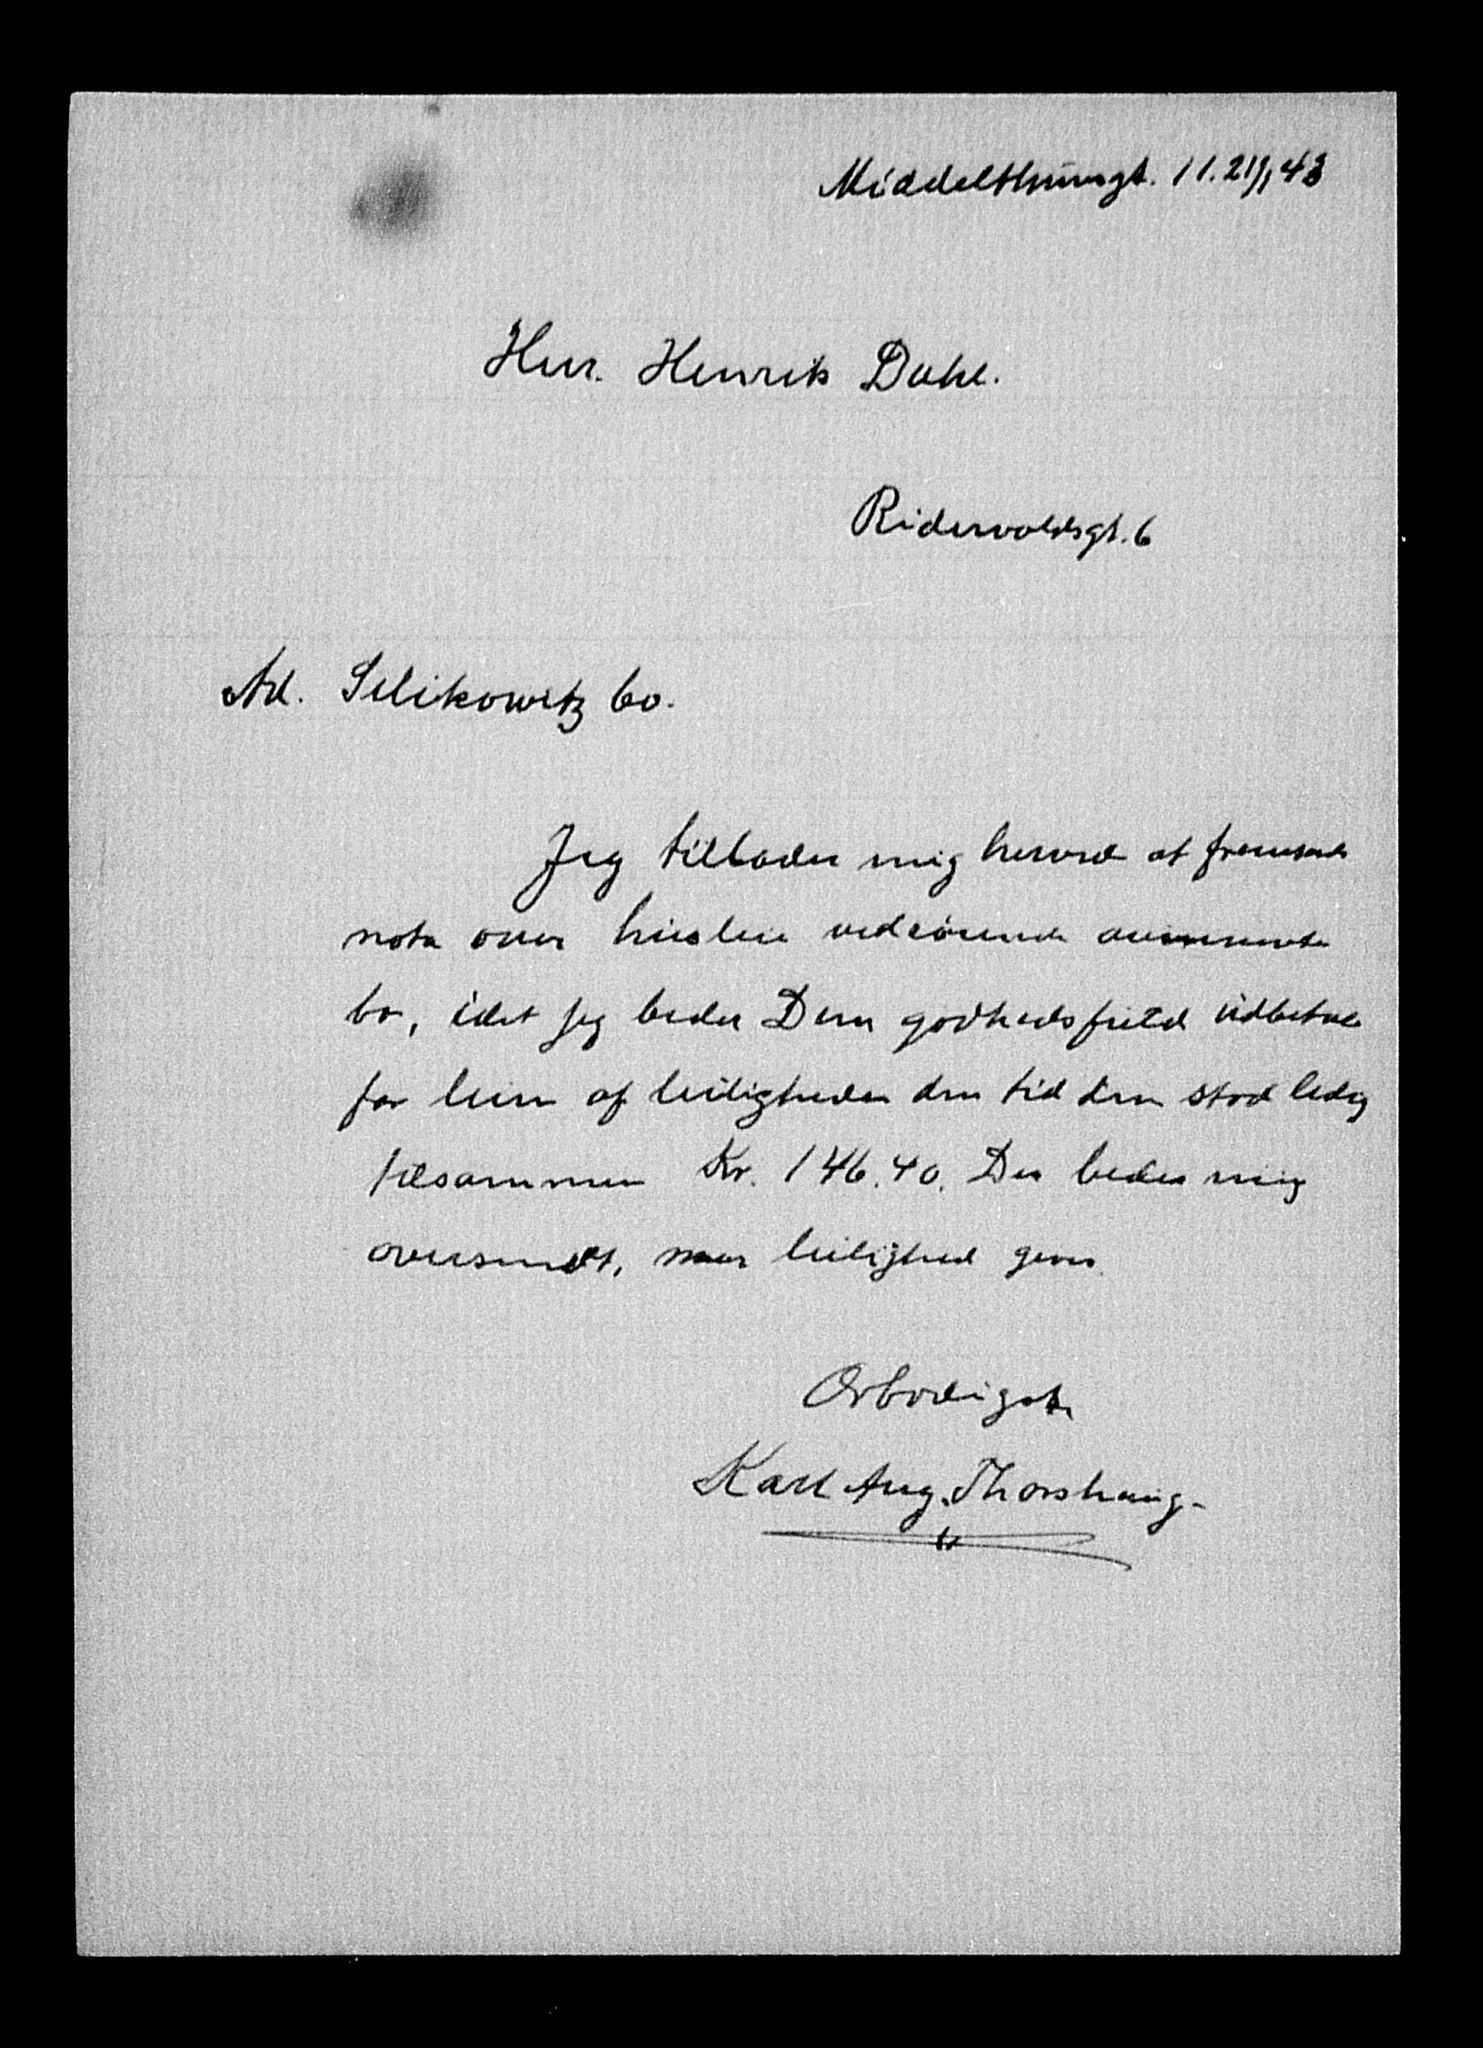 Middelthunsgt. 11. 21/1 43
Herr. Henrik Dahl.
Ridervoldsgt. 6
Ad. Selikowitz bo.
Jeg tillader mig herved at fremsende
nota over husleie vedrørende ovennevnte
bo, idet jeg beder Dem godhedsfuld udbetale
for leien af leiligheden den tid den stod ledig
tilsammen Kr. 146.40. Der bedes mig
oversendt, naar leilighed gives.
Ærbødigst
Karl Aug. Thorshaug.